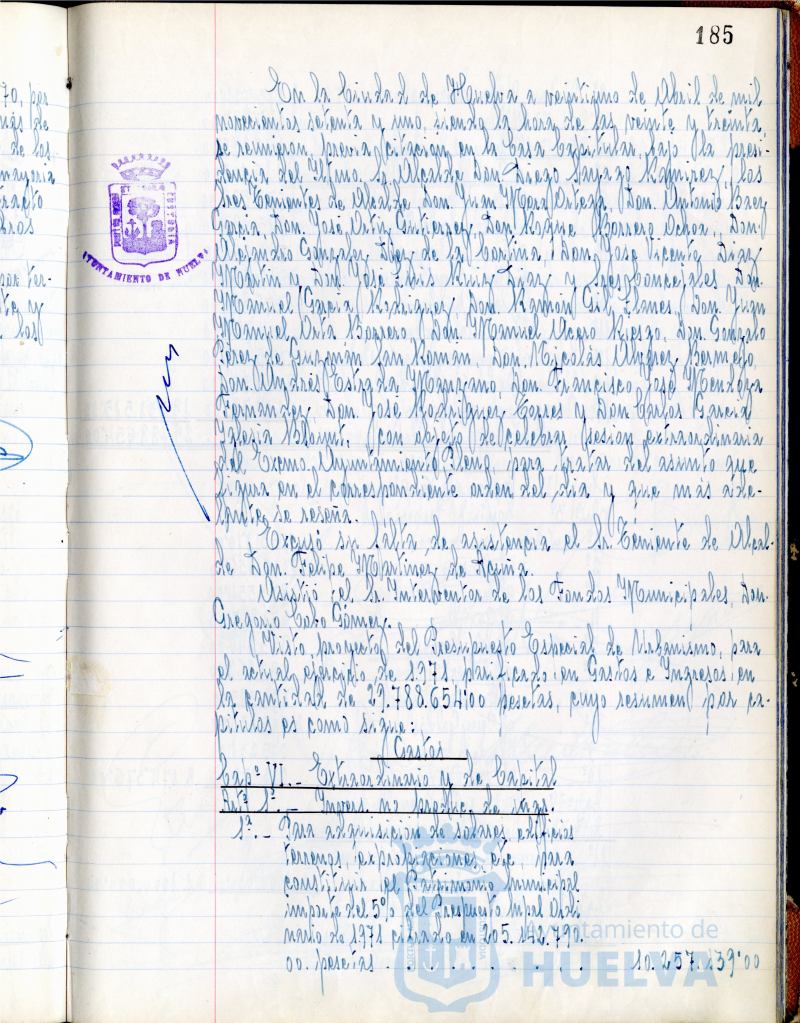 185
En la Ciudad de Huelva a veintiuno de Abril de mil
novecientos setenta y uno, siendo la hora de las veinte y treinta,
se reunieron, previa citación, en la Casa Capitular, bajo la presi-
dencia del Iltmo. Sr. Alcalde Don Diego Sayago Ramírez, los
Sres Tenientes de Alcalde, Don Juan Mora Ortega, Don Antonio Baez
García, Don José Ortiz Gutierrez, Don Roque Borrero Ochoa, Don
Alejandro Gonzalez Diez de la Cortina, Don José Vicente Diaz
Martín y Don José Luis Ruiz Diaz y Sres Concejales Don
Manuel García Rodriguez, Don Ramón Gil Llanes, Don Juan
Manuel Orta Borrero, Don Manuel Acero Riesgo, Don Gonzalo
Perez de Guzmán San Roman, Don Nicolás Bermejo,
Don Andrés Estrada Manzano, Don Francisco José Mendoza
Fernandez, Don José Rodriguez Torres y Don Carlos García
Iglesia Blount, con objeto de celebrar sesion extraordinaria
del Excmo. Ayuntamiento Pleno, para tratar del asunto que
figura en el correspondiente orden del dia y que más ade-
lante se reseña.
Excusó su falta de asistencia el Sr. Teniente de Alcal-
de Don Felipe Martinez de Acuña.
Asistió el Sr. Interventor de los Fondos Municipales, Don
Gregorio Cabo Gómez.
Visto proyecto del Presupuesto Especial de Urbanismo, para
el actual ejercicio de 1971, parificado en Gastos e Ingresos en
la cantidad de 29.788.654'00 pesetas, cuyo resumen por ca-
pítulos es como sigue:
Gastos
Capº VI.- Extraordinario y de Capital
Artº 1º.- Invers. no produc. de ings.
1º.- Para adquisición de solares, edificios
terrenos, expropiaciones, etc, para
constituir el Patrimonio municipal
importe del 5% del Presupuesto Mpal Ordi
nario de 1971 cifrado en 205.142.790.
00. pesetas . . . . . . . . . . . 10.257.139'00
AYUNTAMIENTO DE HUELVA
Ayuntamiento de
HUELVA